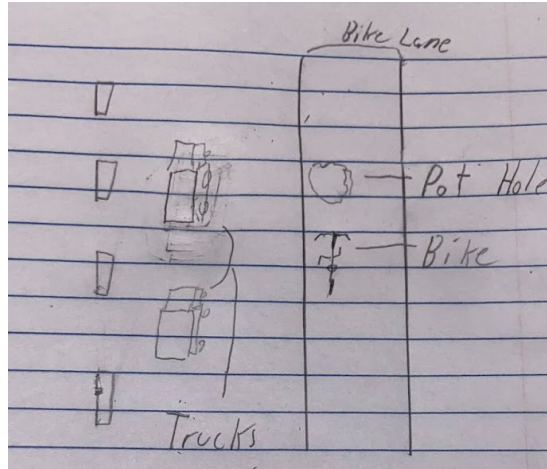 Bike Lane
Pot Hole
Bike
Trucks